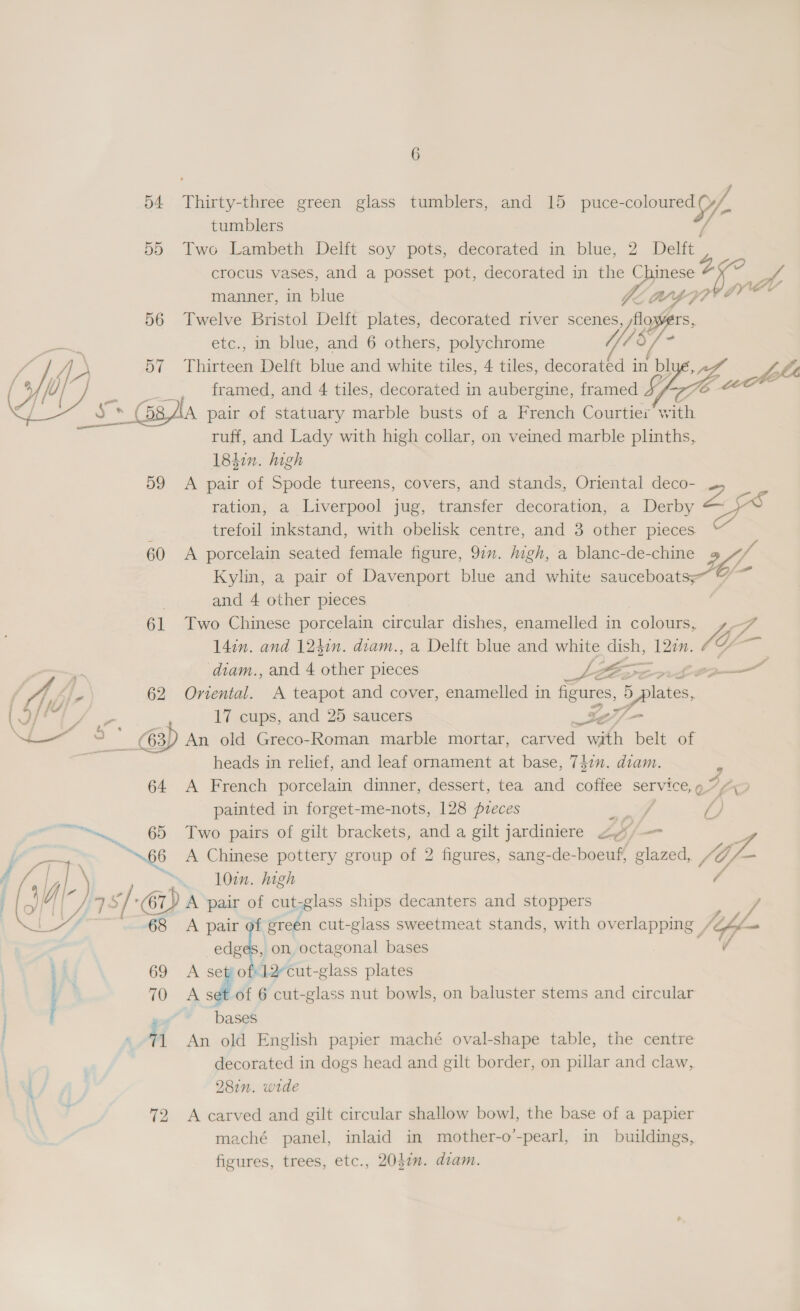 6
54 Thirty-three green glass tumblers, and 15 puce-coloured
tumblers
55 Two Lambeth Delft soy pots, decorated in blue, 2 Delft
crocus vases, and a posset pot, decorated in the Chinese
manner, in blue
56 Twelve Bristol Delft plates, decorated river scenes, flowers,
etc., in blue, and 6 others, polychrome
57 Thirteen Delft blue and white tiles, 4 tiles, decorated in blue,
framed, and 4 tiles, decorated in aubergine, framed
58 A pair of statuary marble busts of a French Courtier with
ruff, and Lady with high collar, on veined marble plinths,
18½in. high
59 A pair of Spode tureens, covers, and stands, Oriental deco-
ration, a Liverpool jug, transfer decoration, a Derby
trefoil inkstand, with obelisk centre, and 3 other pieces
60 A porcelain seated female figure, 9in. high, a blanc-de-chine
Kylin, a pair of Davenport blue and white sauceboats,
and 4 other pieces
61 Two Chinese porcelain circular dishes, enamelled in colours,
14in. and 12½in. diam., a Delft blue and white dish, 12in.
diam., and 4 other pieces
62 Oriental. A teapot and cover, enamelled in figures, 5 plates,
17 cups, and 25 saucers
63 An old Greco-Roman marble mortar, carved with belt of
heads in relief, and leaf ornament at base, 7½in. diam.
64 A French porcelain dinner, dessert, tea and coffee service,
painted in forget-me-nots, 128 pieces
65 Two pairs of gilt brackets, and a gilt jardiniere
66 A Chinese pottery group of 2 figures, sang-de-boeuf, glazed,
10in. high
67 A pair of cut-glass ships decanters and stoppers
68 A pair of green cut-glass sweetmeat stands, with overlapping
edges, on octagonal bases
69 A set of 12 cut-glass plates
70 A set of 6 cut-glass nut bowls, on baluster stems and circular
bases
71 An old English papier maché oval-shape table, the centre
decorated in dogs head and gilt border, on pillar and claw,
28in. wide
72 A carved and gilt circular shallow bowl, the base of a papier
maché panel, inlaid in mother-o'-pearl, in buildings,
figures, trees, etc., 20½in. diam.